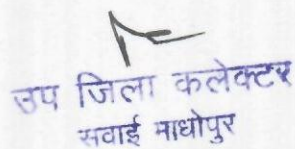 उप जिला कलेक्टर
सवाई माधोपुर